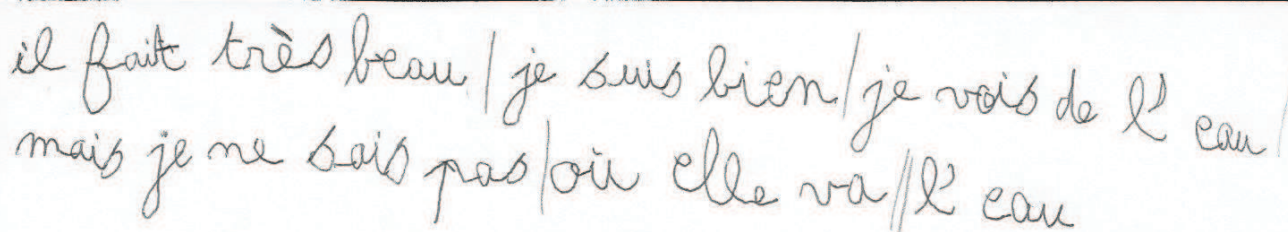 il fait très beau / je suis bien / je vois de l'eau /
mais je ne sais pas / où elle va // l'eau